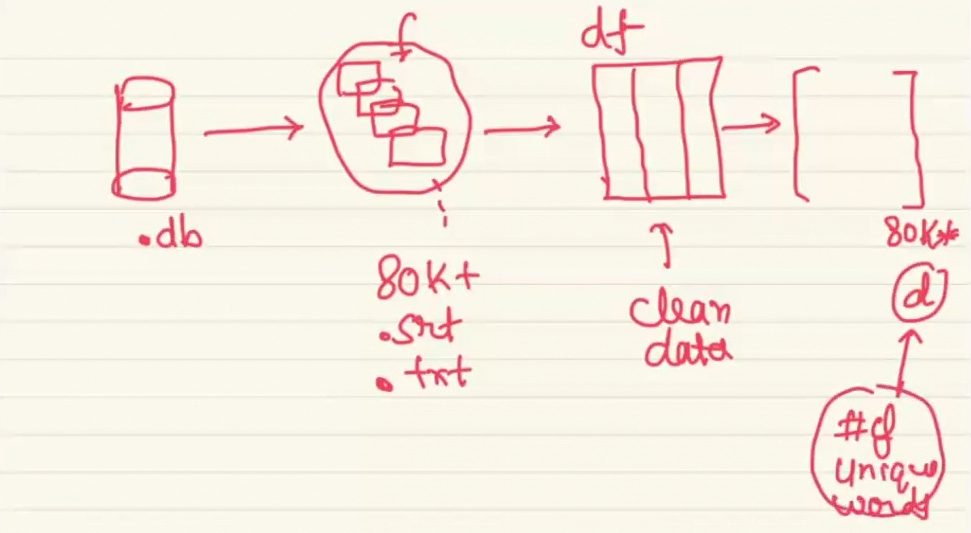 f
df
.db
80K+
.srt
.txt
clean
data
80K*
d
# of
unique
words